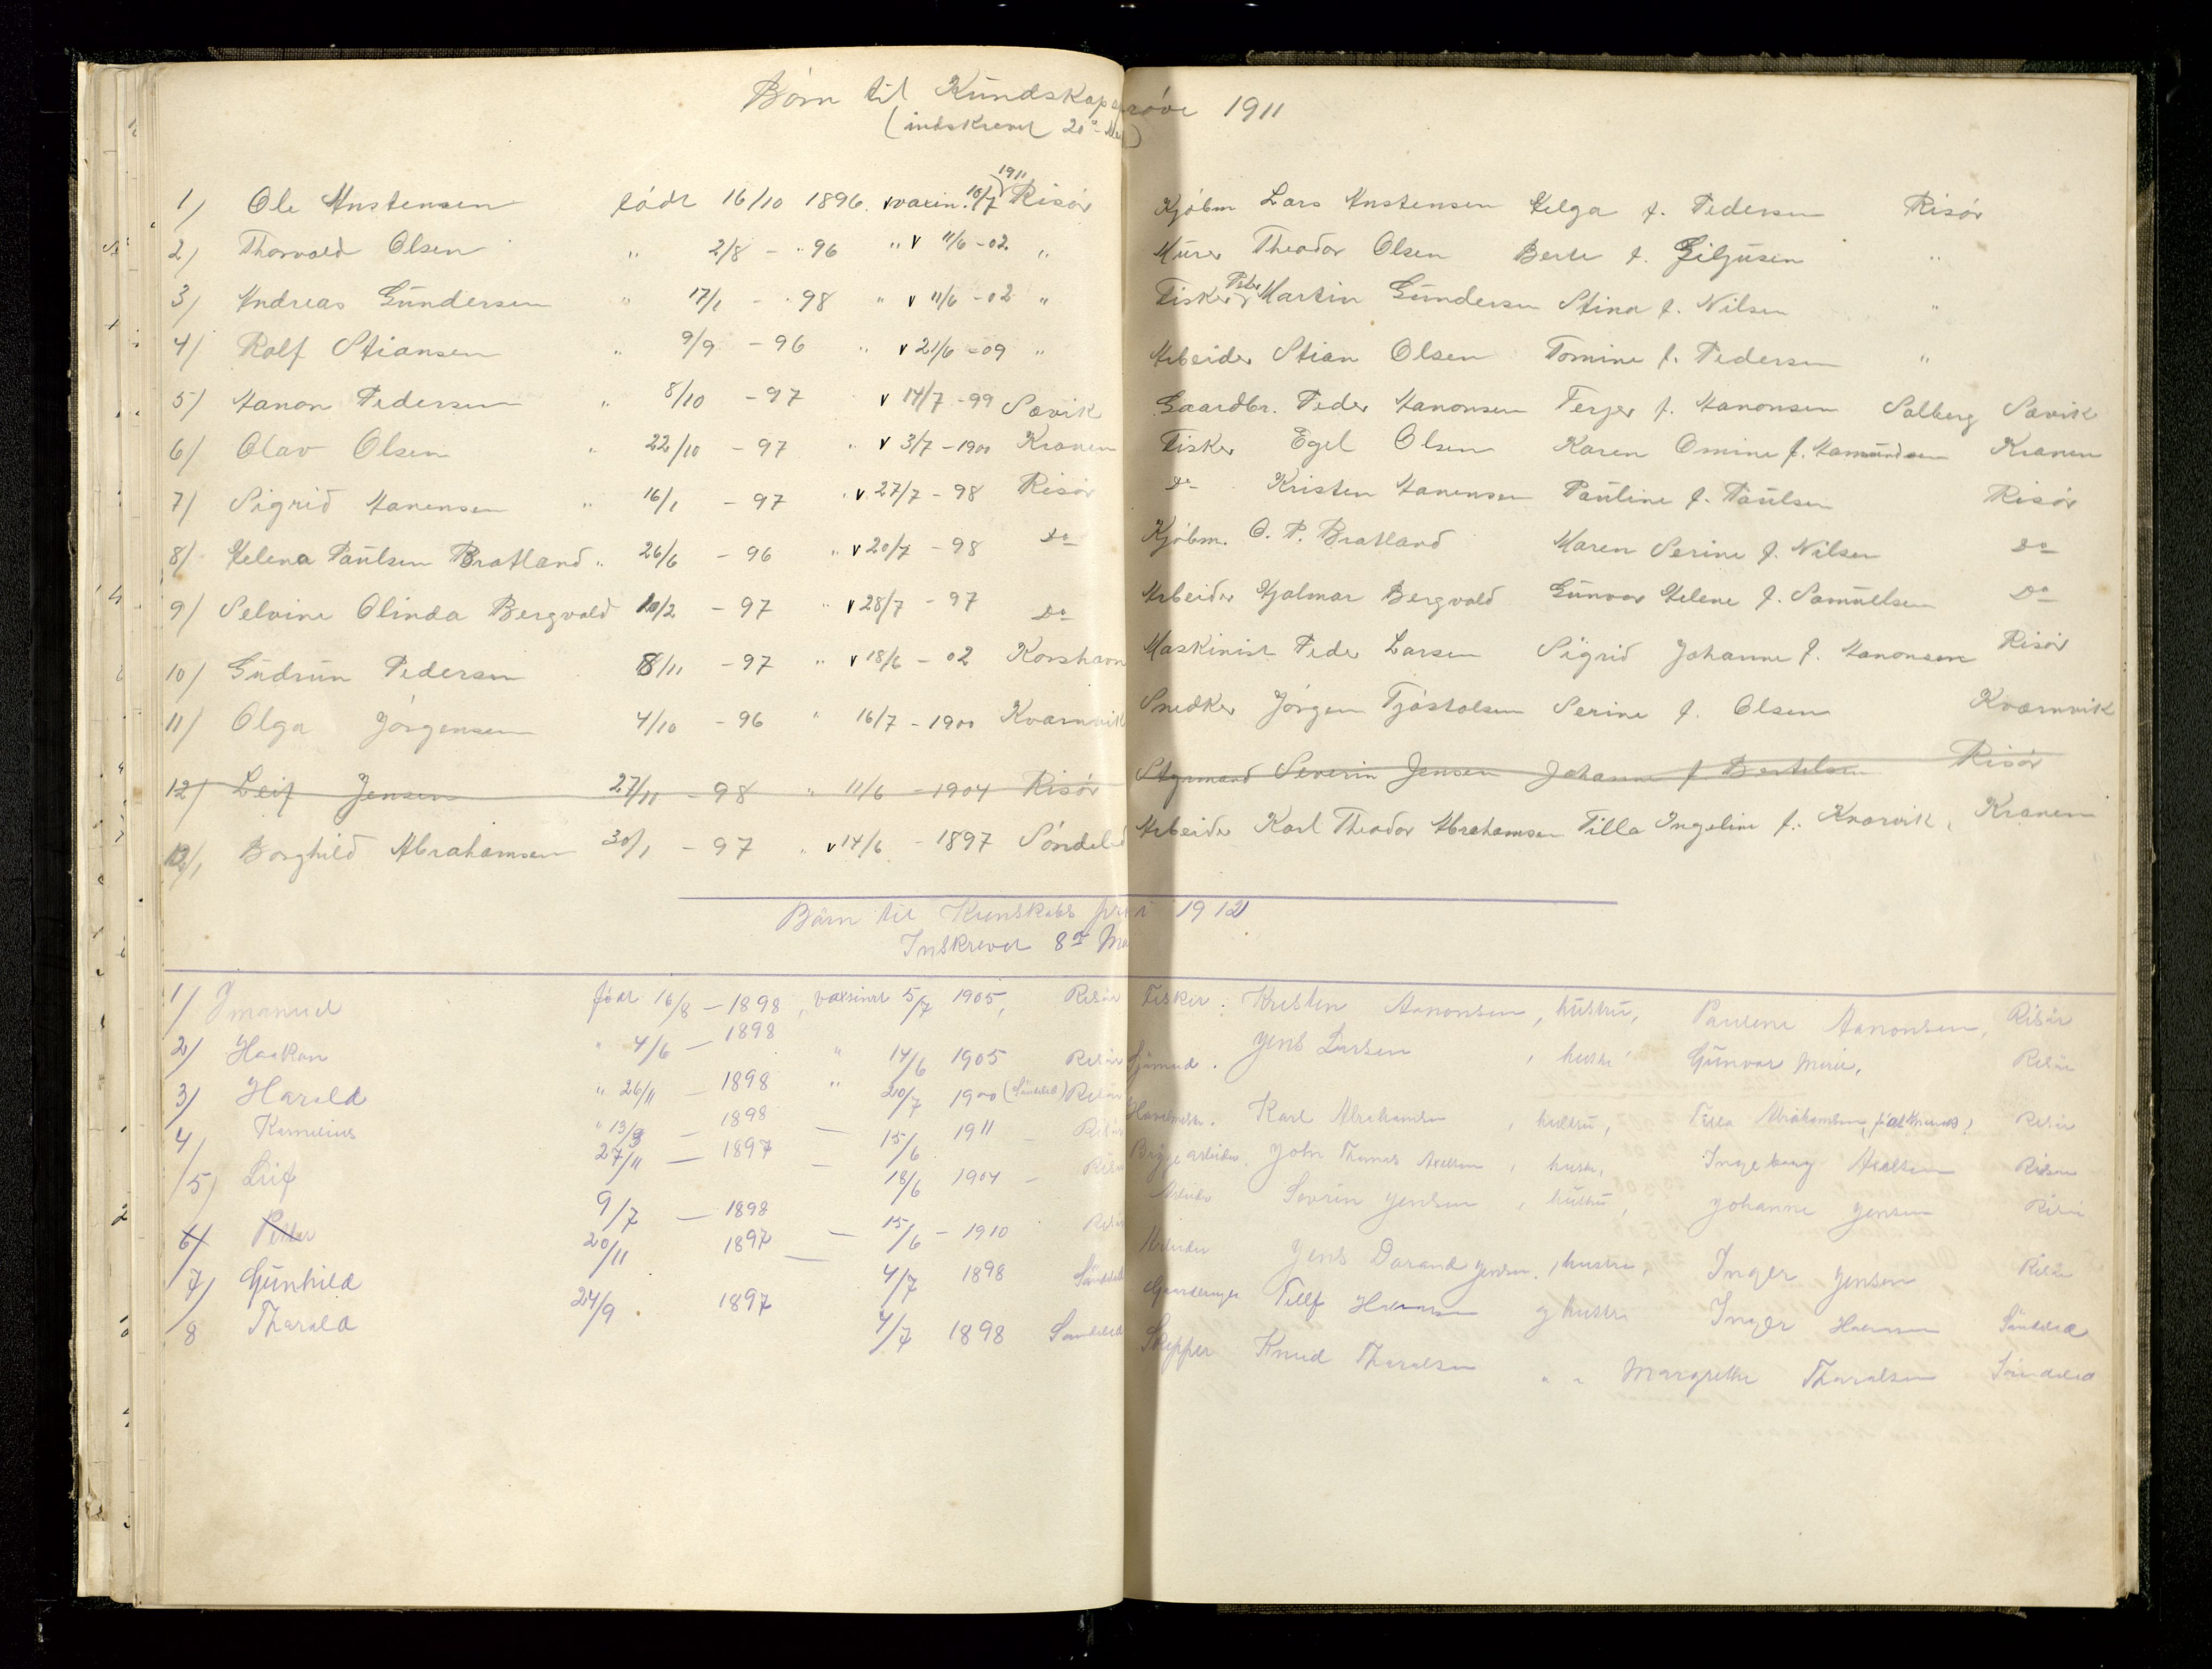 Börn til Kundskapsprøve 1911
(indskrevet 20de Mai)
1) Ole Anstensen født 16/10 1896. vaxin. 10/7 1911 Risør Kjøbm Lars Anstensen Helga f. Pedersen Risør
2) Thorvald Olsen " 2/8 - " 96 " v 11/6 - 02 " Murer Theodor Olsen Berte f. Giljusen "
3) Andreas Gundersen " 17/1 - " 98 " v 11/6 - 02 " Fisker Peder Martin Gundersen Stina f. Nilsen "
4) Rolf Stiansen " 9/9 - 96 " v 21/6 - 09 " Arbeider Stian Olsen Tomine f. Pedersen "
5) Aanon Pedersen " 8/10 - 97 v 14/7 - 99 Sævik Gaardbr. Peder Aanonsen Terjer f. Aanonsen Solberg Sævik
6) Olav Olsen " 22/10 - 97 " v 3/7 - 1900 Kranen Fisker Egel Olsen Karen Omine f. Aamundsen Kranen
7) Sigrid Aanensen " 16/1 - 97 " v 27/7 - 98 Risør Do Kristen Aanensen Pauline f. Paulsen Risør
8) Helena Paulsen Bratland " 26/6 - 96 " v 20/7 - 98 Do Kjøbm. O. P. Bratland Maren Serine f. Nilsen Do
9) Selvine Olinda Bergvald 10/2 - 97 " v 28/7 - 97 Do Arbeider Hjalmar Bergvald Gunvor Helene f. Samuelsen Do
10) Gudrun Pedersen 8/11 - 97 " v 18/6 - 02 Korshavn Maskinist Peder Larsen Sigrid Johanne f. Aanonsen Risør
11) Olga Jørgensen 4/10 - 96 " 16/7 - 1900 Kvarnvik Snedker Jørgen Tjøstolsen Serine f. Olsen Kvarnvik
12) Leif Jensen 27/11 - 98 " 11/6 - 1904 Risør Styrmand Severin Jensen Johanne f. Bertelsen Risør
12) Borghild Abrahamsen 30/1 - 97 " v 14/6 - 1897 Søndeled Arbeider Karl Theodor Abrahamsen Tilla Ingeline f. Knarvik, Kranen
Börn til Kunskabs 1912
Inskrevet 8de Mai
1) Imanuel födt 16/8 - 1898, vaxsinert 5/7 1905, Risør Fisker: Kristen Aanonsen, hustru, Pauline Aanonsen, Risør
2) Haakon " 4/6 - 1898 " 14/6 1905 Risør Sjømand. Jens Larsen, hustru Gunvor Marie, Risør
3) Harald " 26/11 - 1898 " 20/7 1900 (Søndeled) Risør Karl Abrahamsen, hustru, Tilla Abrahamsen Risør
4) Kornelius " 13/9 - 1898 - 15/6 1911 - Risør Bryggearbeider John Thomas Axelsen, hustru, Ingeborg Axelsen Risør
5) Leif 27/11 - 1897 - 18/6 1904 - Risør Arbeider Sevrin Jensen, hustru, Johanne Jensen Risør
6) Petter 9/7 - 1898 - 15/6 - 1910 Risør Arbeider Jens Daraud Jensen, hustru, Inger Jensen Risør
7) Gunhild 20/11 1897 - 4/7 1898 Søndeled Tellf g hustru Inger Søndeled
8 Tharald 24/9 . 1897 4/7 1898 Søndeled Skipper Knud Tharalsen " " Margrethe Tharalsen Søndeled